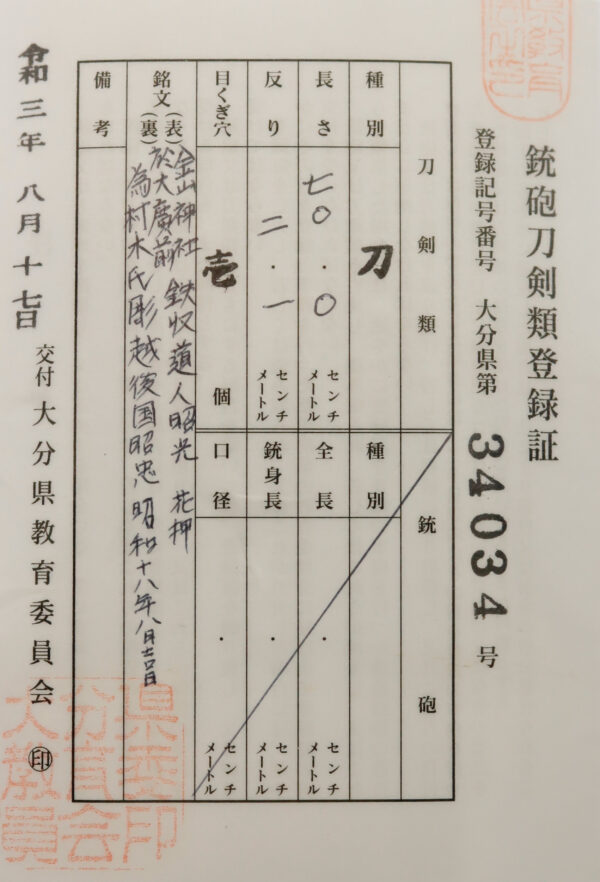 銃砲刀剣類登録証
登録記号番号 大分県第 34034 号
刀剣類
種別 刀
長さ 七〇.〇 センチメートル
反り 二.一 センチメートル
目くぎ穴 壱 個
銃砲
種別
全長 ・ センチメートル
銃身長 ・ センチメートル
口径 ・ センチメートル
銘文 (表) 金山神社 鉄収道人昭光 花押
於大廣前
(裏) 為村木氏彫越後国昭忠 昭和十八年八月吉日
備考
令和三年八月十七日
交付 大分県教育委員会 印
大分県
教育委
員会印